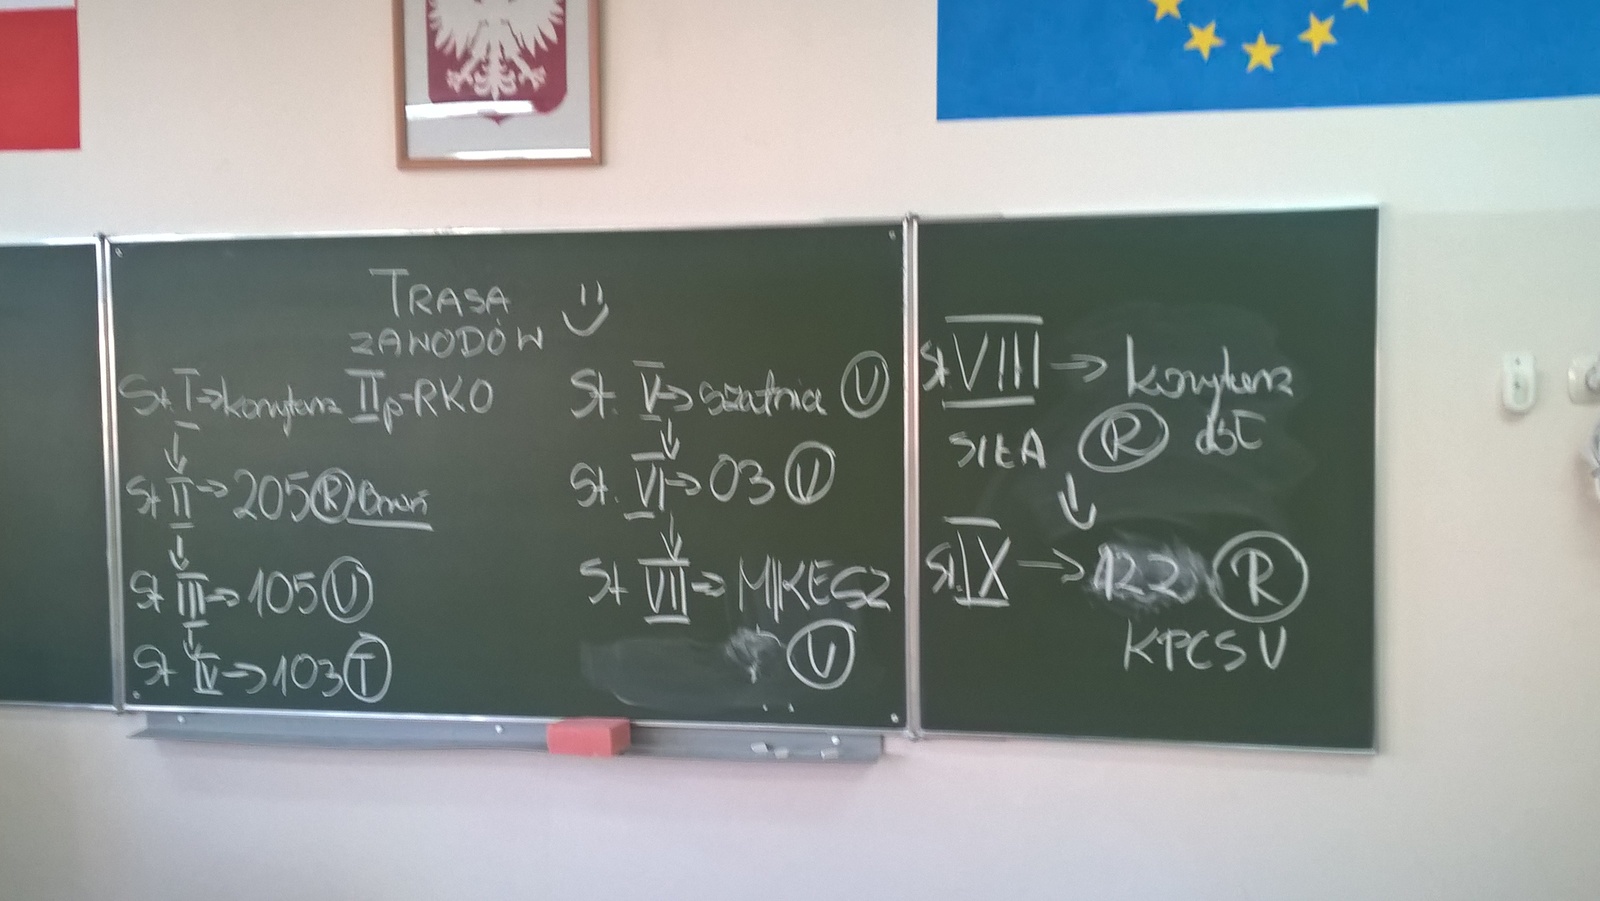 TRASA
ZAWODÓW
St. I → korytarz II p-RKO
St II → 205 R Broń
St III → 105 V
St IV → 103 T
St. V → szatnia V
St. VI → 03 V
St VII → MIKESZ
V
St. VIII → korytarz
SIŁA R
St. IX → 122 R
KPCSV